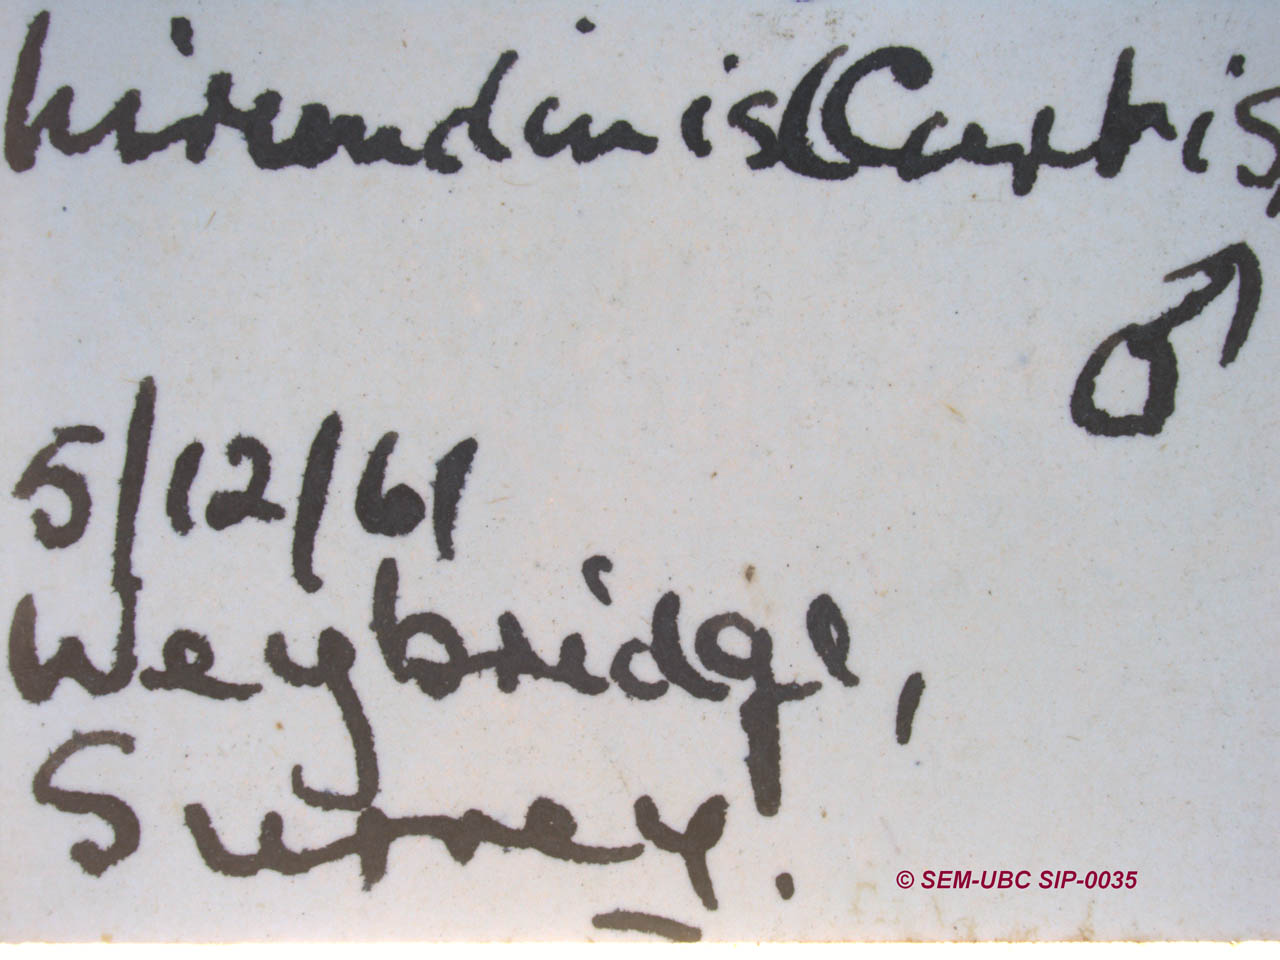 hirundinis (Curtis,
♂
5/12/61
Weybridge,
Surrey.
© SEM-UBC SIP-0035